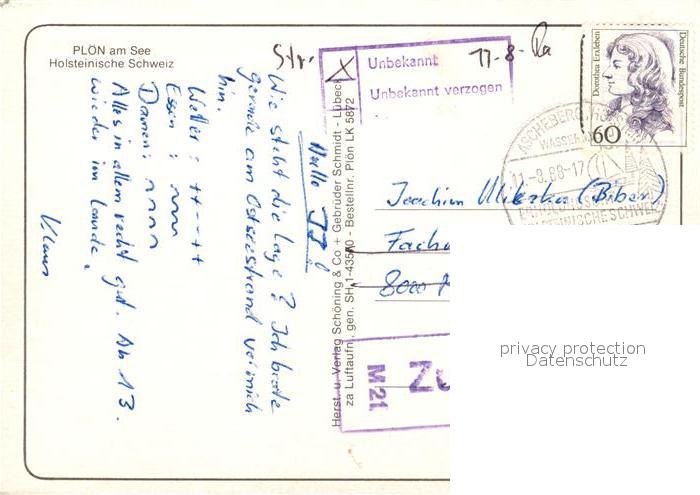 PLÖN am See
Holsteinische Schweiz
Wie steht die Lage? Ich brate
gerade am Ostseestrand vor mich
hin.
Wetter: ++--++
Essen:
Damen:
Alles in allem recht gut. Ab 13.
wieder im Lande.
Klaus
Herst. u. Verlag Schöning & Co + Gebrüder Schmidt - Lübeck
za Luftaufn. gen. SH 1-435/0 - Bestellnr. Plön LK 5872
Str.
X
Unbekannt
Unbekannt verzogen
17-8-
Dorothea Erxleben
Deutsche Bundespost
60
ASCHEBERG, HOL
WASSER
11-8.88-17
HOLSTEINISCHE SCHWEIZ
Joachim (Biber)
Facha
8000
Zu
M21
privacy protection
Datenschutz